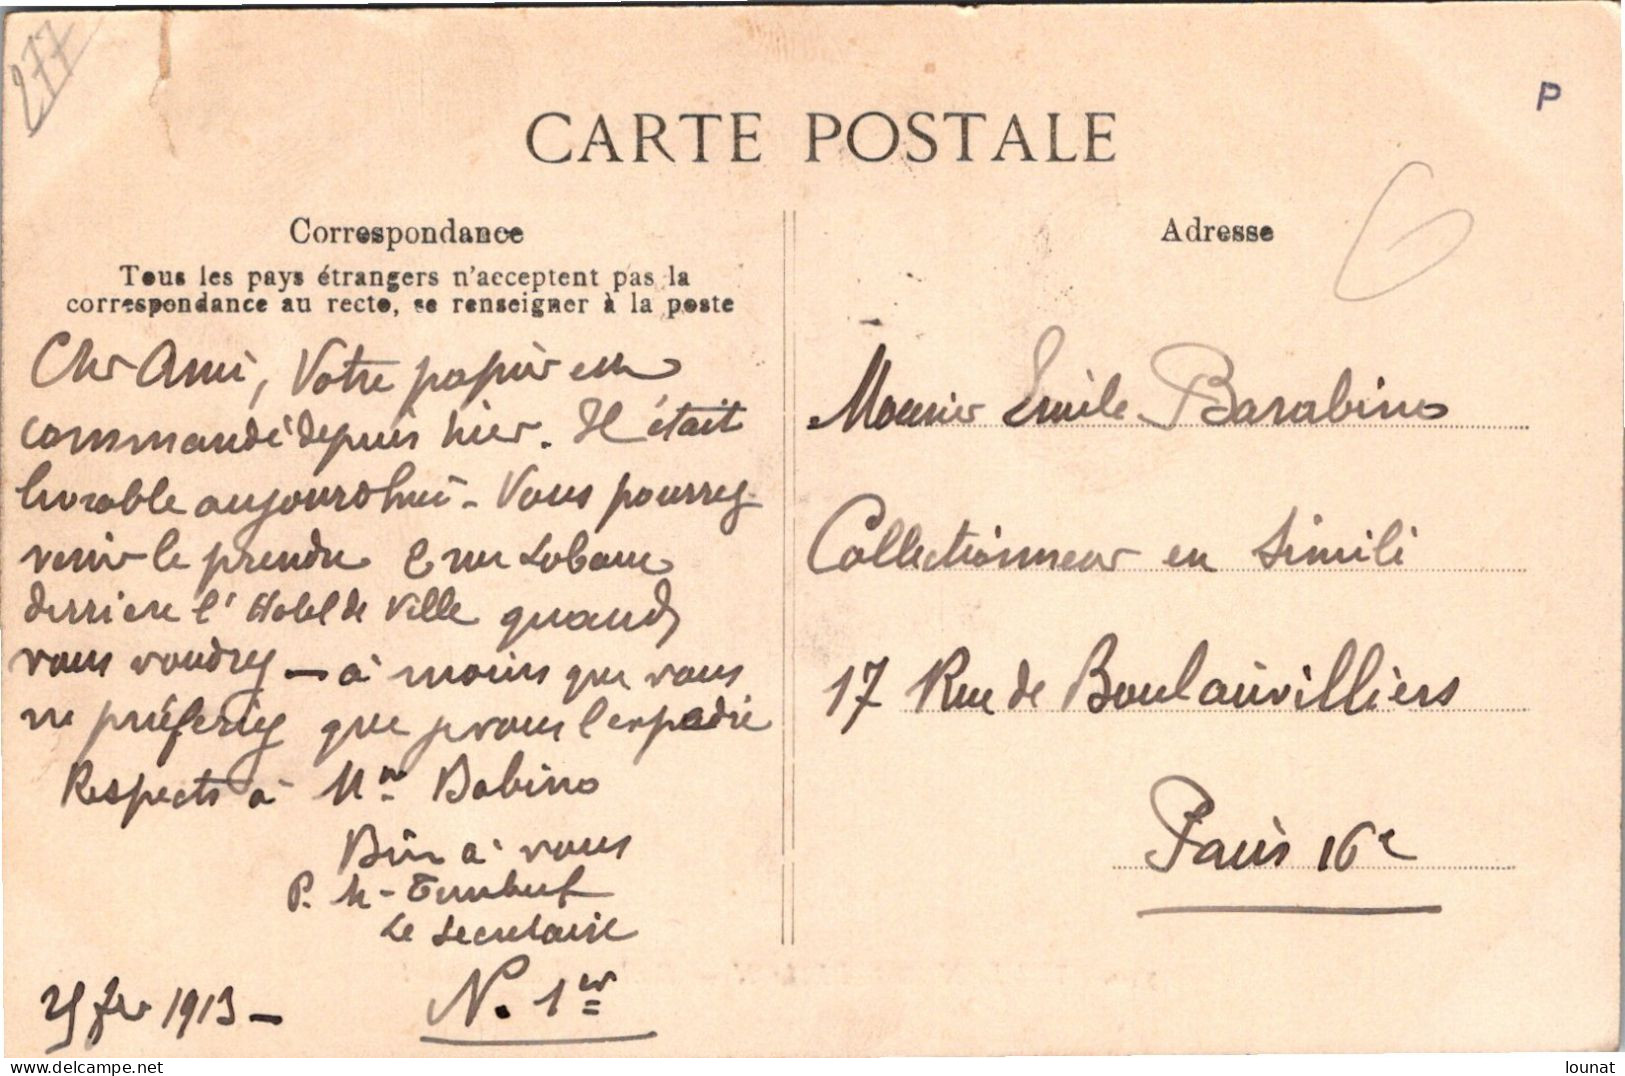 277
P
CARTE POSTALE
Correspondance
Tous les pays étrangers n'acceptent pas la
correspondance au recto, se renseigner à la poste
Cher Ami, Votre papier est
commandé depuis hier. Il était
livrable aujourdhui - Vous pourrez
venir le prendre 2 rue Lobau
derriere l'Hotel de Ville quand
vous voudrez — à moins que vous
ne préferiez que je vous l'expédie
Respects à Mme Babino
Bien à vous
P. M-
Le Secretaire
N. 1er
25 fev 1913 —
Adresse
Monsieur Emile Barabino
Collectionneur en Simili
17 Rue de Boulainvilliers
Paris 16e
delcampe.net
lounat